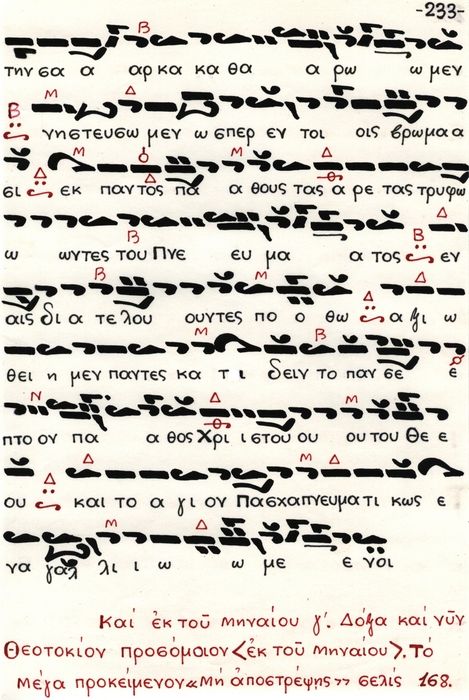 -233-
την σα α αρ κα κα θα α ρω ω μεν
νη στευ σω μεν ω σπερ εν τοι οις βρω μα α
σι εκ παν τος πα α θους τας α ρε τας τρυ φω
ω ων τες του Πνε ευ μα α τος εν
αις δι α τε λου ουν τες πο ο θω α ξι ω
θει η μεν παν τες κα τι δειν το παν σε ε
πτο ον πα α θος Χρι ι στου ου ου του Θε ε
ου και το α γι ον Πασχα πνευ μα τι κως ε
να γαλ λι ι ω ω με ε νοι
Καί ἐκ τοῦ μηναίου γ΄. Δόξα καί νῦν
Θεοτοκίον προσόμοιον <ἐκ τοῦ μηναίου>. Τό
μέγα προκείμενον «Μή ἀποστρέψης» σελίς 168.